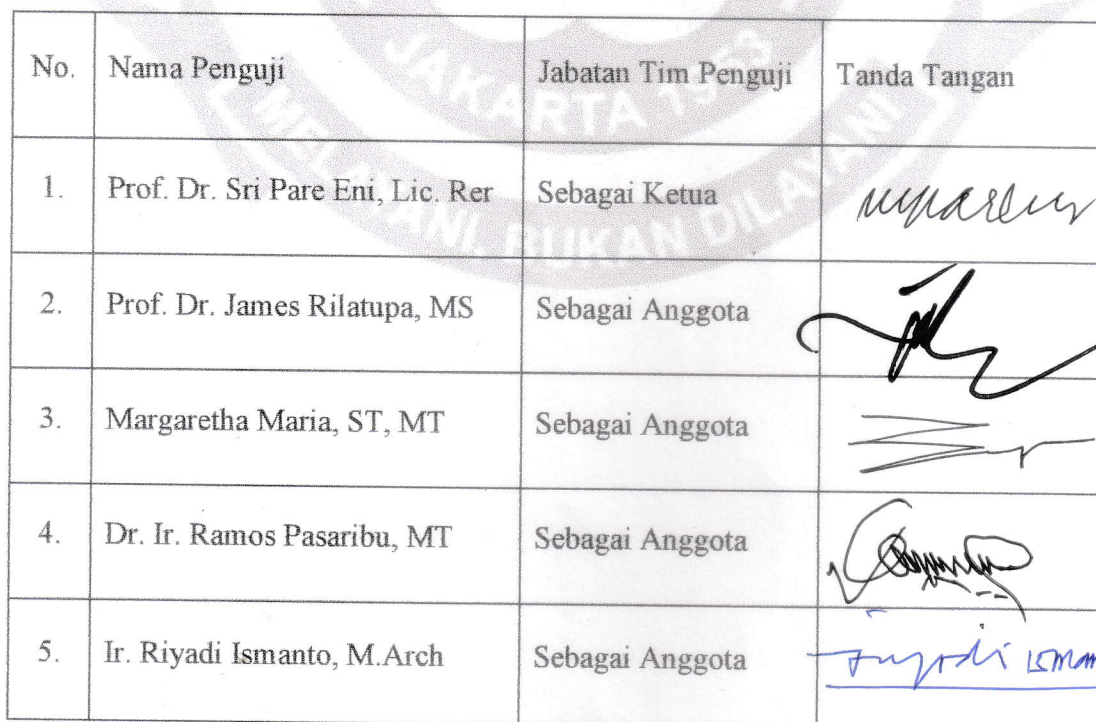 JAKARTA 1953
MELAYANI, BUKAN DILAYANI
No. Nama Penguji Jabatan Tim Penguji Tanda Tangan
1. Prof. Dr. Sri Pare Eni, Lic. Rer Sebagai Ketua
2. Prof. Dr. James Rilatupa, MS Sebagai Anggota
3. Margaretha Maria, ST, MT Sebagai Anggota
4. Dr. Ir. Ramos Pasaribu, MT Sebagai Anggota
5. Ir. Riyadi Ismanto, M.Arch Sebagai Anggota